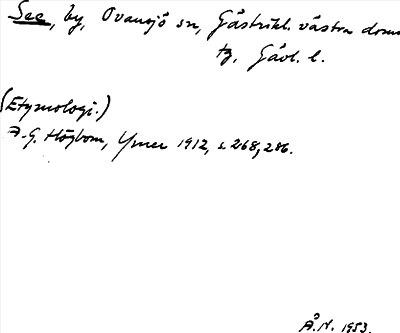 See, by, Ovansjö sn, Gästrikl. västra doms
tg, Gävl. l.
(Etymologi.)
A. G. Högbom, Ymer 1912, s 268, 286.
Å.N. 1953.